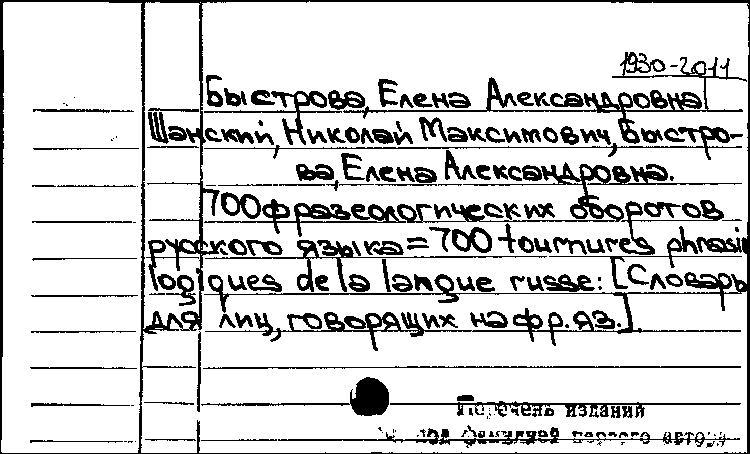 1930-2011
Быстрова, Елена Александровна
Шанский, Николай Максимович, Быстро-
ва, Елена Александровна.
700 фразеологических оборотов
русского языка = 700 tournures phraséo
logiques de la langue russe: [Словарь
для лиц, говорящих на фр. яз.].
Перечень изданий
под фамилией первого автора